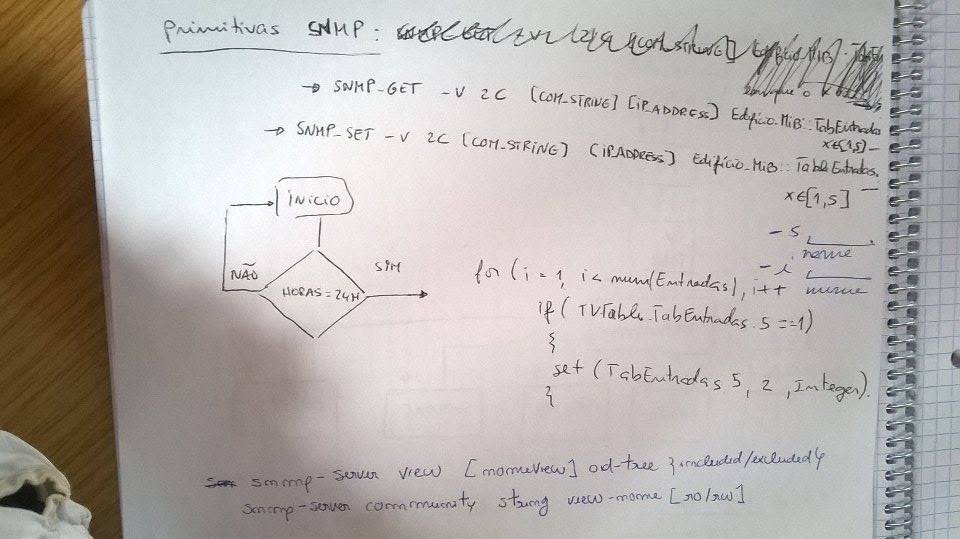 Primitivas SNMP:
→ SNMP_GET -V 2C [COM_STRING] [IP_ADDRESS] Edifício_MIB::TabEntradas
x∈[1,5]
→ SNMP_SET -V 2C [COM_STRING] [IP.ADDRESS] Edifício_MIB::TableEntradas.
x∈[1,5]
- s
nome
- i
INICIO
NÃO
SIM
HORAS = 24H
for (i = 1, i < num(Entradas), i++
if ( TVTable.TabEntradas.5 ==1)
{
set (TabEntradas 5, 2, Integer).
}
snmp-server view [nomeView] oid-tree {included/excluded}
snmp-server community string view-nome [ro/rw]